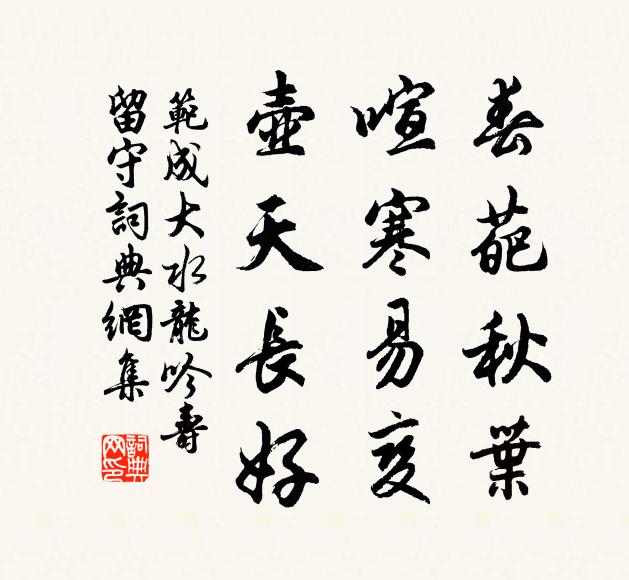 春葩秋葉
喧寒易變
壺天長好
範成大水龍吟壽
留守詞典網集
詞典网印